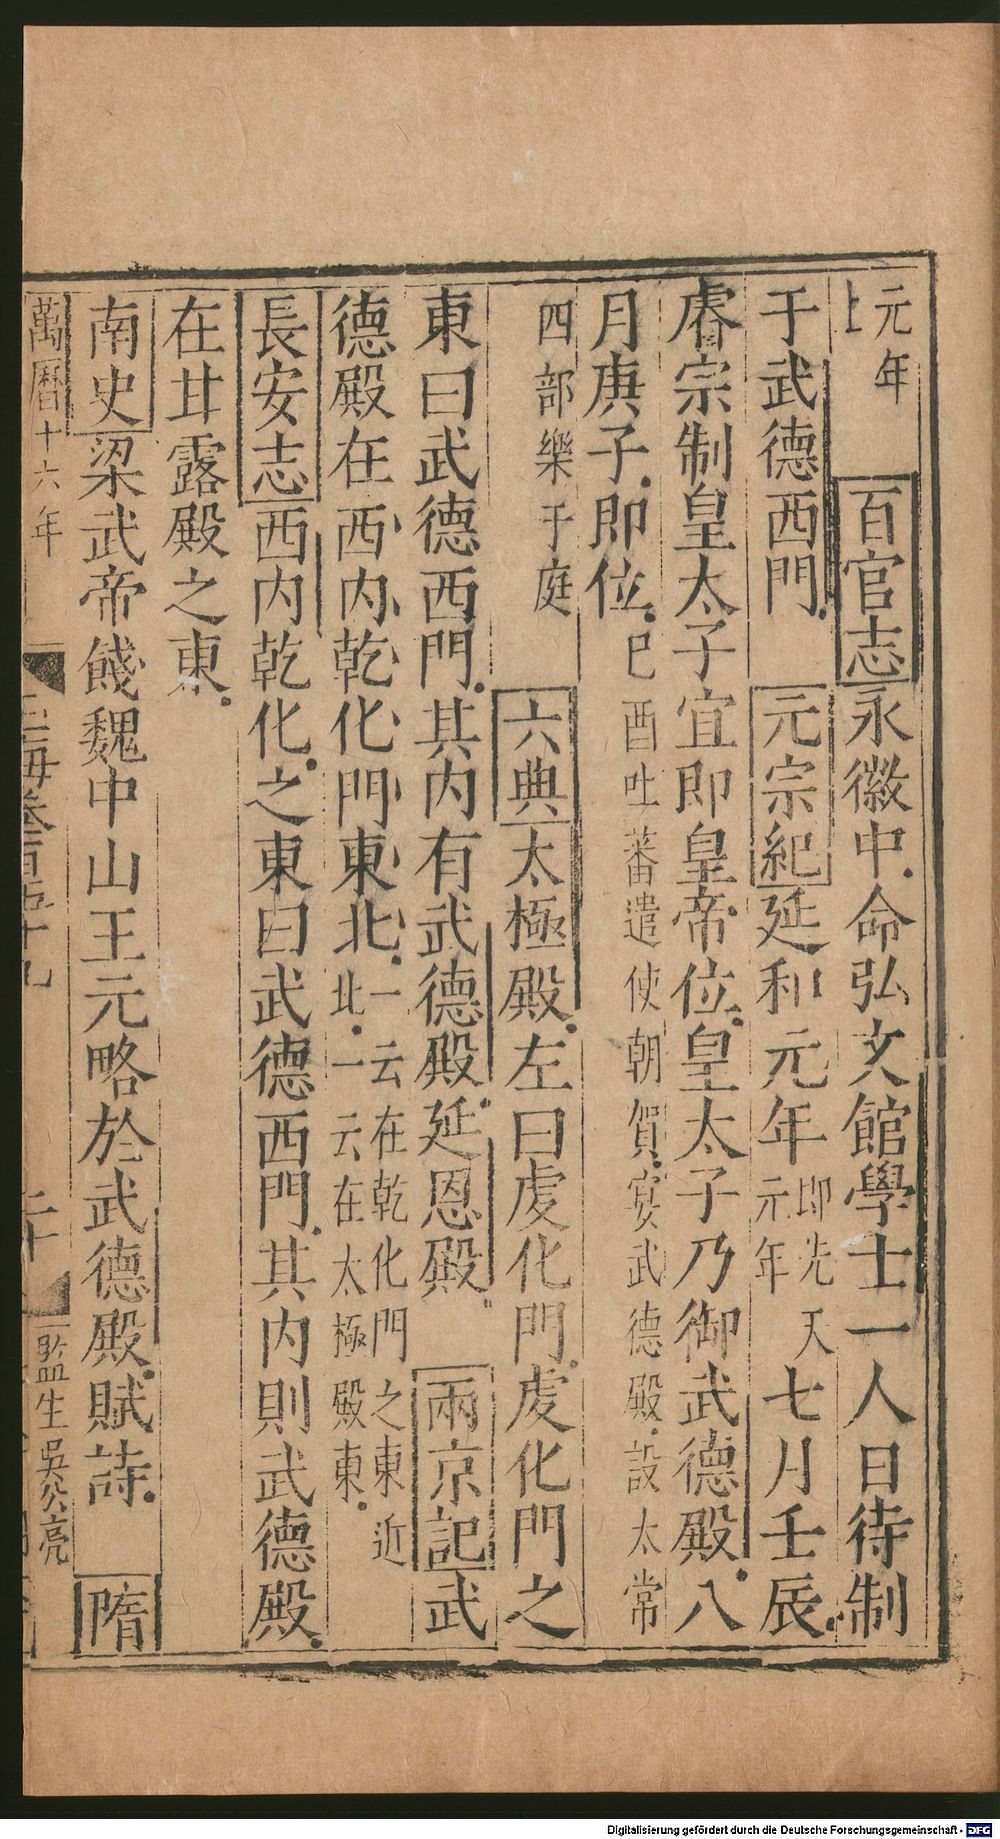 元年
上 百官志永徽中命弘文館學士一人日待制
于武德西門 元宗紀延和元年即先天元年七月壬辰
睿宗制皇太子宜即皇帝位皇太子乃御武德殿八
月庚子即位已酉吐蕃遣使朝賀宴武德殿設太常
四部樂于庭 六典太極殿左曰虔化門虔化門之
東曰武德西門其内有武德殿延恩殿 兩京記武
德殿在西内乾化門東北一云在乾化門之東近
北一云在太極殿東
長安志西内乾化之東曰武德西門其内則武德殿
在甘露殿之東
南史梁武帝餞魏中山王元略於武德殿賦詩 隋
萬曆十六年
玉海卷百五十九
二十
監生吳公亮
Digitalisierung gefördert durch die Deutsche Forschungsgemeinschaft - DFG